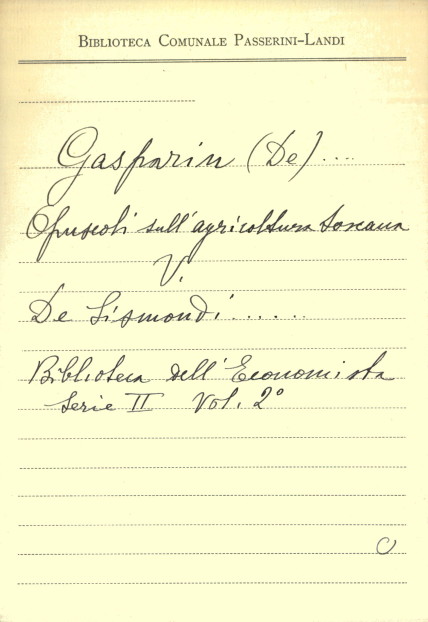 BIBLIOTECA COMUNALE PASSERINI-LANDI
Gasparin (De)....
Opuscoli sull'agricoltura toscana
V.
De Sismondi......
Biblioteca dell'Economista
Serie II Vol. 2°
C